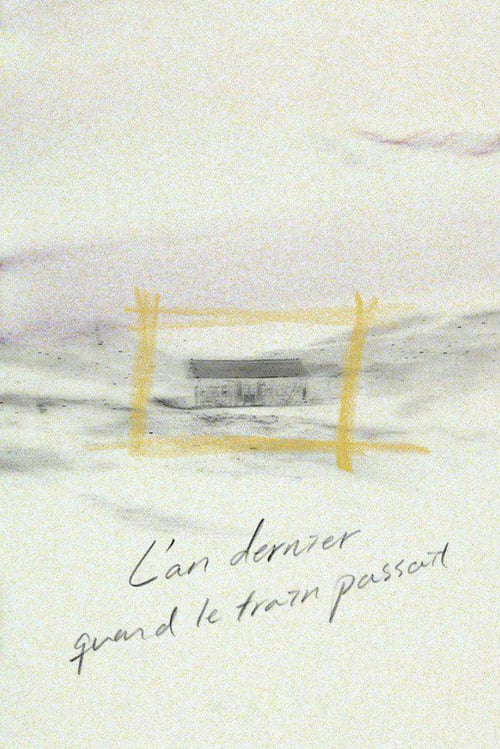 L'an dernier
quand le train passait